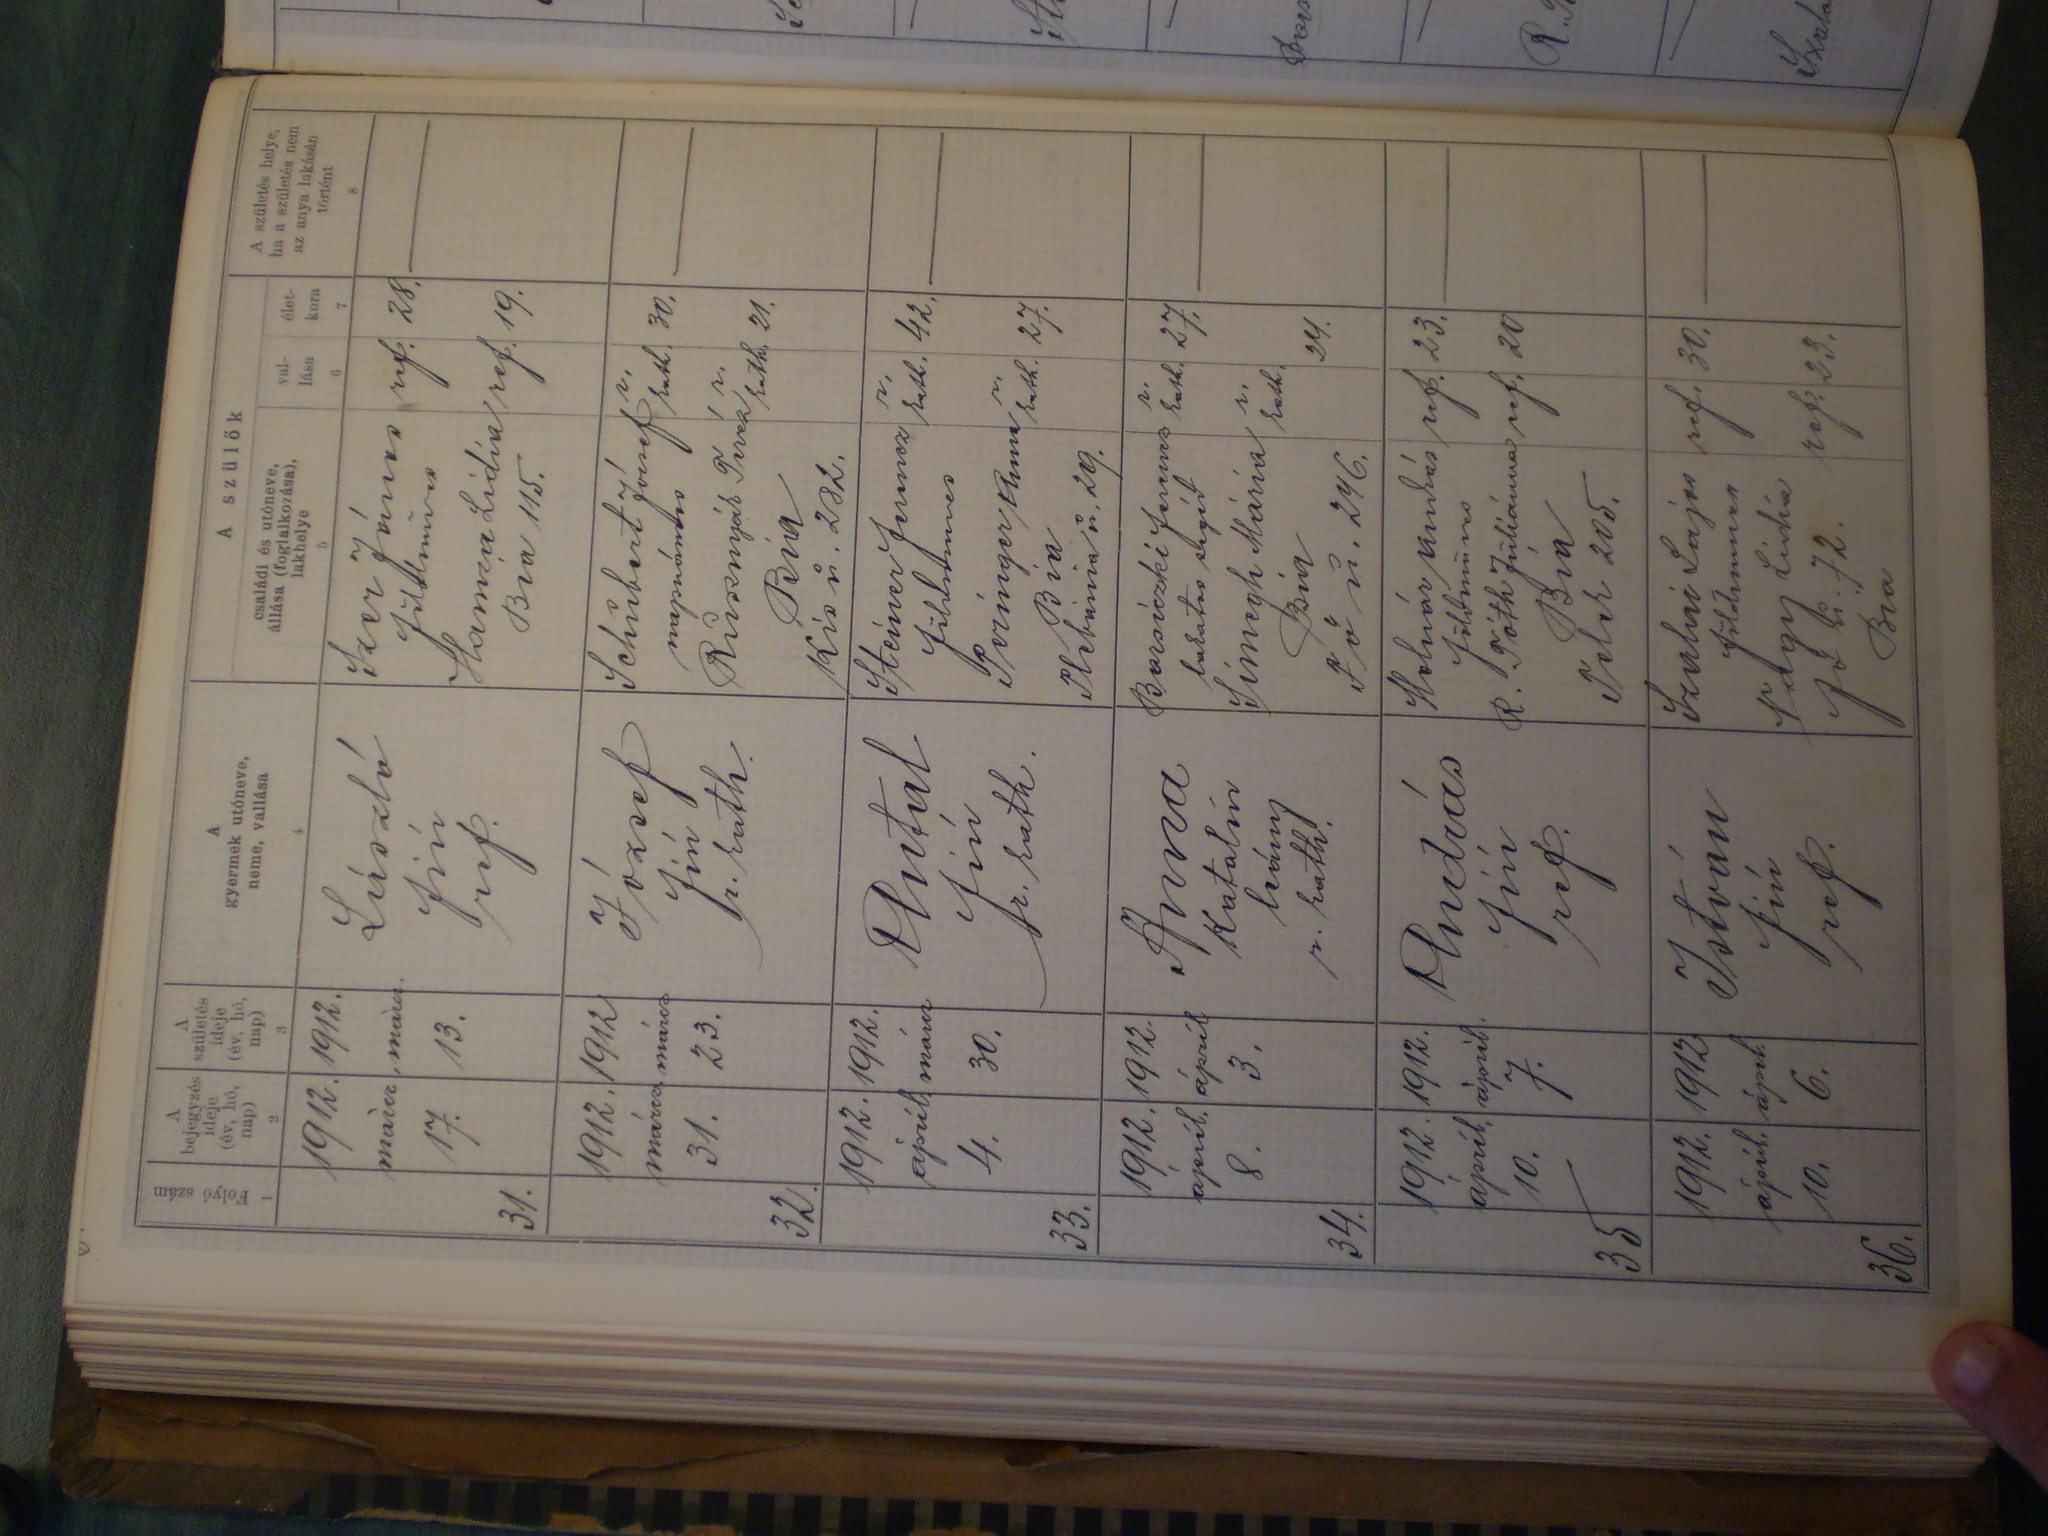 Folyó szám
A bejegyzés ideje (év, hó, nap)
A születés ideje (év, hó, nap)
A gyermek utóneve, neme, vallása
A szülők
családi és utóneve, állása (foglalkozása), lakhelye
vallása
életkora
A születés helye, ha a születés nem az anya lakásán történt
1 2 3 4 5 6 7 8
31.
1912. márcz. 17.
1912. márcz. 13.
László
fiú
ref.
János ref. 28.
földműves
Lidia ref. 19.
Bia 115.
32.
1912. márcz. 31.
1912 márcz 23.
József
fiú
r. kath.
Schubert József r. kath. 30.
napszámos
Teréz r. kath. 21.
Bia
Kis u. 232.
33.
1912. ápril. 4.
1912. márcz 30.
Antal
fiú
r. kath.
Steiner Ferencz r. kath. 42.
földműves
Peringer Anna r. kath. 27.
Bia
Plébánia u. 29.
34.
1912. ápril. 8.
1912. ápril 3.
Anna
Katalin
leány
r. kath.
Ferencz r. kath. 27.
lakatos segéd
Sümegh Mária r. kath. 24.
Bia
Fő u. 246.
35
1912. ápril. 10.
1912. ápril. 7.
András
fiú
ref.
Molnár András ref. 23.
földműves
R. Tóth Juliánna ref. 20
Bia
Telek 205.
36.
1912. ápril. 10.
1912 ápril. 6.
István
fiú
ref.
Lajos ref. 30.
földműves
Nagy Lidia ref. 23.
Fő u. 72.
Bia